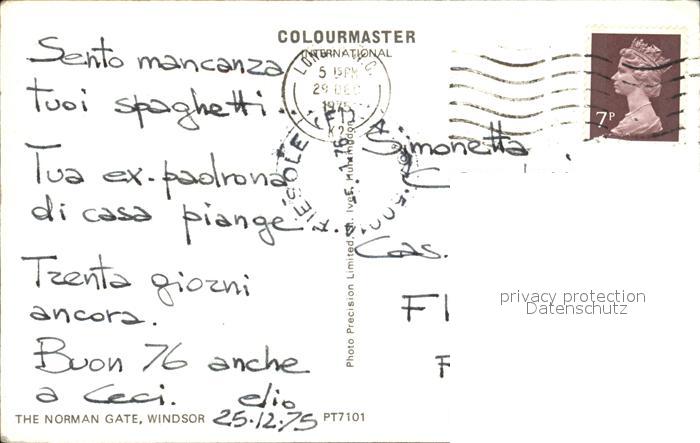 COLOURMASTER
INTERNATIONAL
Sento mancanza
tuoi spaghetti..
Tua ex-padrona
di casa piange..
Trenta giorni
ancora.
Buon 76 anche
a Ceci. elio
THE NORMAN GATE, WINDSOR 25.12.75 PT7101
Photo Precision Limited, St. Ives, Huntingdon
5 15PM
29 DEC
1975
FIESOLE (FI)
7P
Simonetta
Cas.
Fl
F
privacy protection
Datenschutz